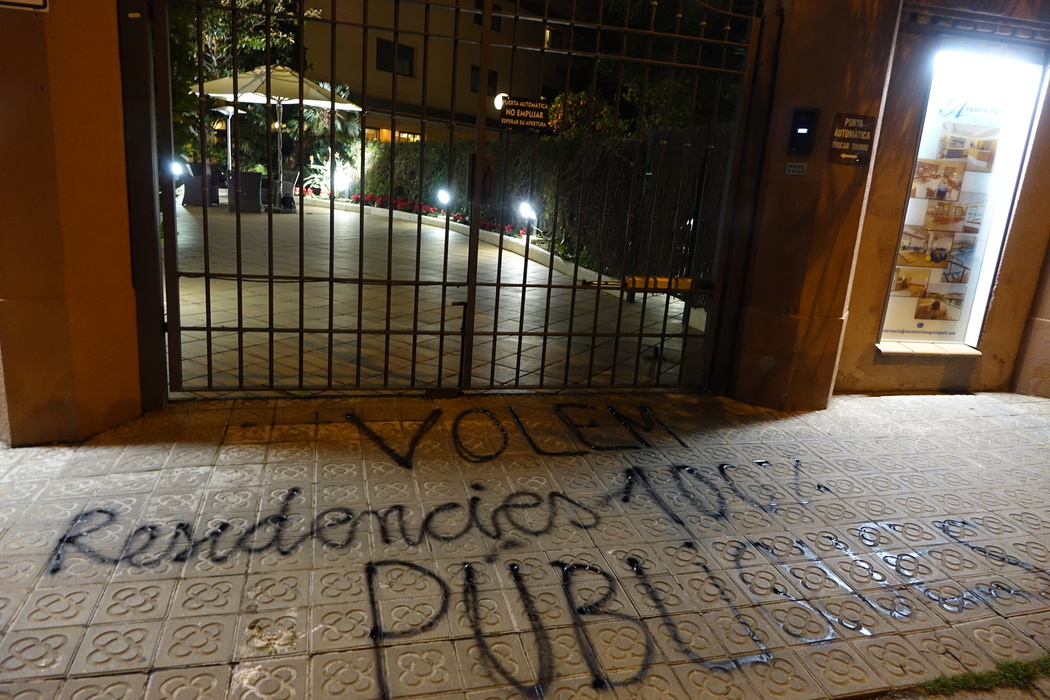 PUERTA AUTOMATICA
NO EMPUJAR
ESPERAR SU APERTURA
PORTA
AUTOMÀTICA
TRUCAR TIMBRE
VOLEM
Residencies 100%
PÚBLIQUES